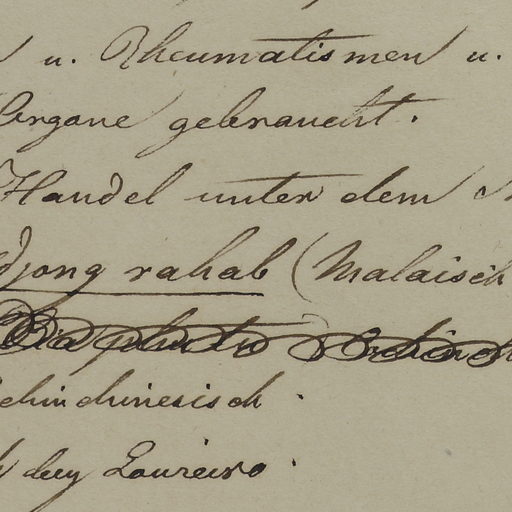 u. Rheumatismen u.
Organe gebraucht.
Handel unter dem
djong rahab (Malaisch
chinchinesisch.
bey Loureiro.